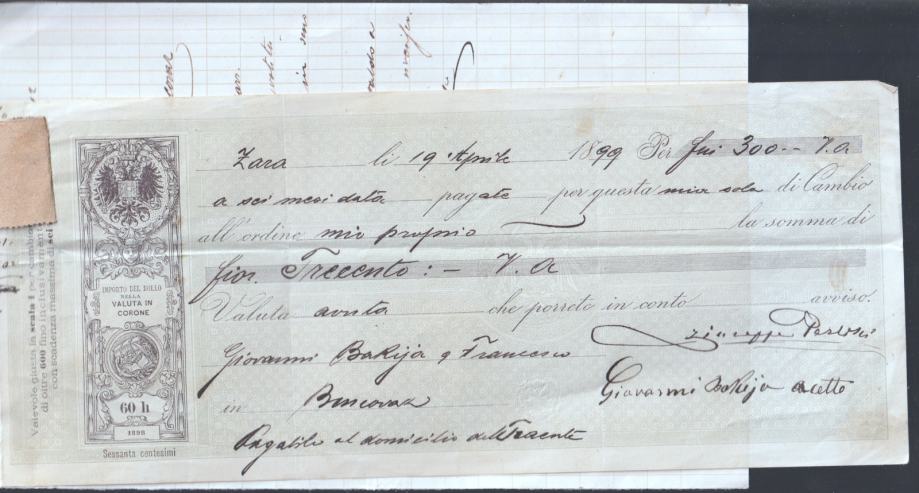 Zara li 19 Aprile 1899 Per fni 300-- V.a
a sei mesi data pagate per questa mia sola di Cambio
all'ordine mio proprio la somma di
fior. Trecento :- V.a
Valuta avuta che porrete in conto avviso.
Giuseppe
Giovanni Bakija q Francesco
Giovanni Bakija accetto
in
Pagabile al domicilio del Traente
IMPORTO DEL BOLLO
NELLA
VALUTA IN
CORONE
60 h
1898
Sessanta centesimi
Valevole giusta la scala I per cambi
di oltre 600 fino inclusivamente
con scadenza massima di sei